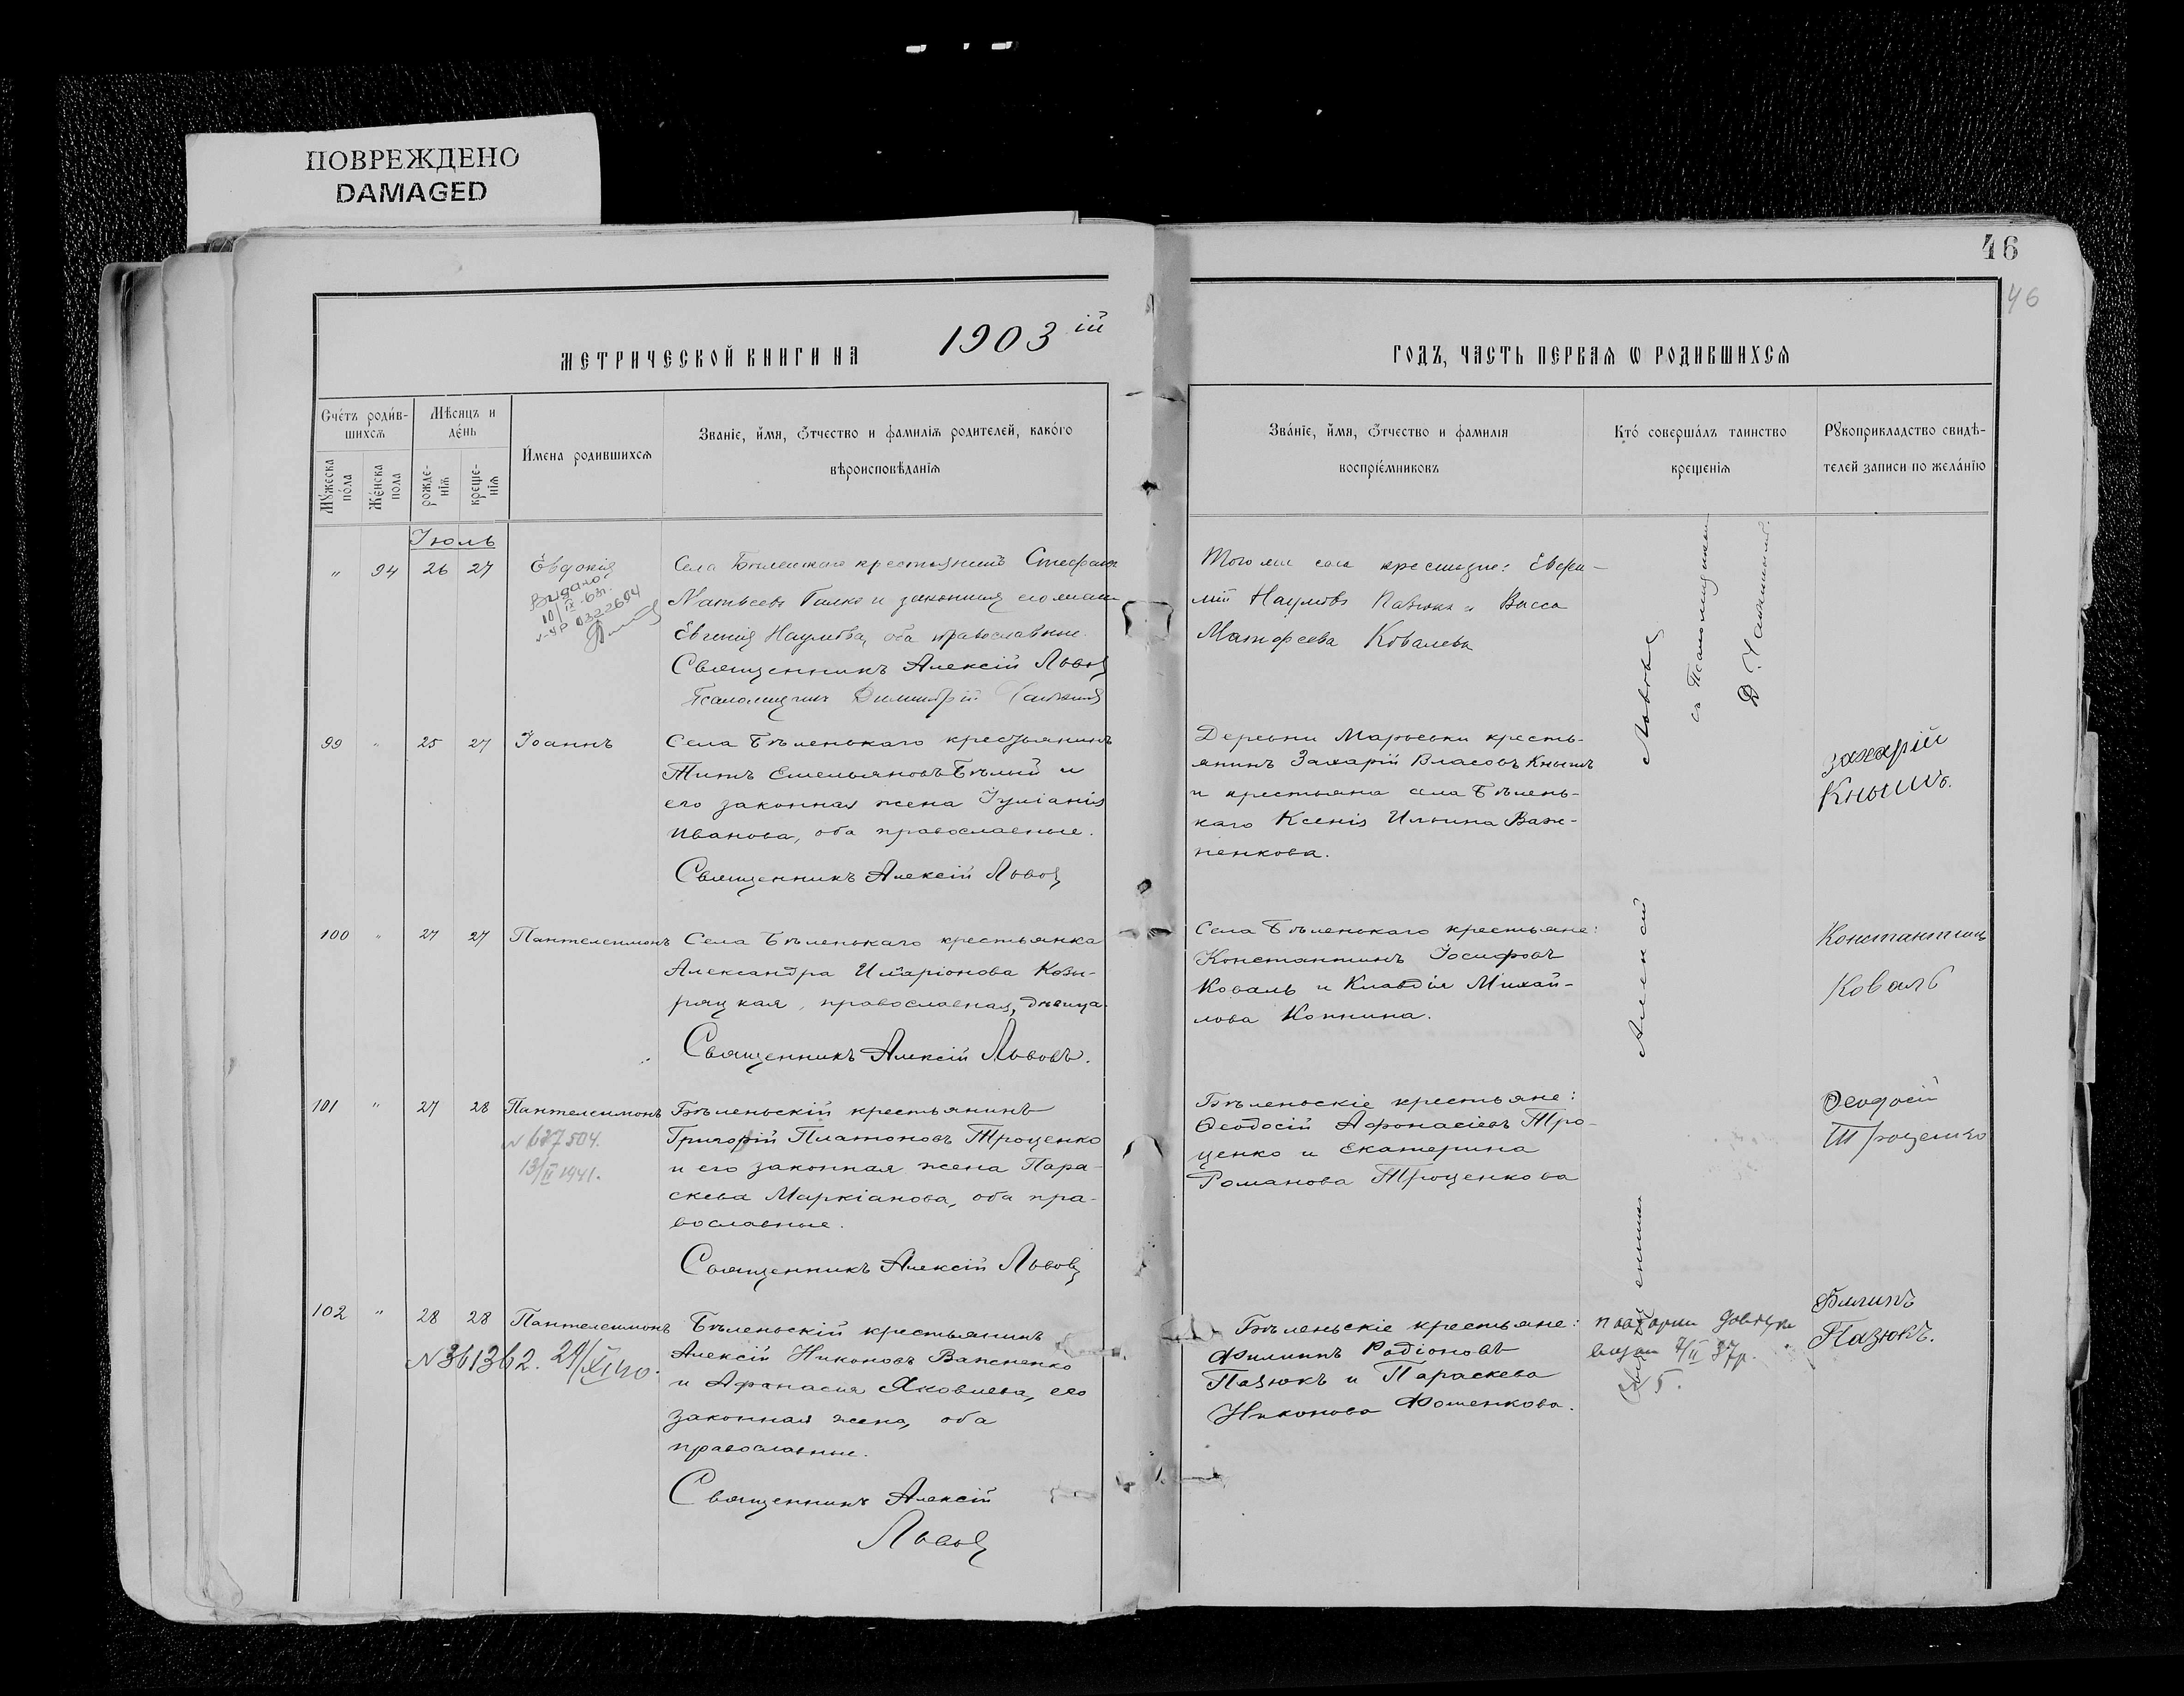 ПОВРЕЖДЕНО
DAMAGED
46
46
МЕТРИЧЕСКОЙ КНИГИ НА 1903 ій
ГОДЪ, ЧАСТЬ ПЕРВАѦ Ѡ РОДИВШИХСѦ
Счетъ родив-
шихсѧ
Мѣсяцъ и
день
Имена родившихсѧ
Званіе, имя, ѿчество и фамиліѧ родителей, какого
вѣроисповѣданіѧ
Мужеска
пола
Женска
пола
рожде-
ніѧ
креще-
ніѧ
Званіе, имя, ѿчество и фамилія
воспріемниковъ
Кто совершалъ таинство
крещеніѧ
Рꙋкоприкладство свидѣ-
телей записи по желанію
Іюль
" 94 26 27 Евдокія
Села Бѣленькаго крестьянинъ Стефанъ
Матѳеевъ Галко и законная его жена
Евгенія Наумова, оба православные.
Священникъ Алексій Львовъ
Псаломщикъ Димитрій
Того же села крестьяне: Евѳи-
мій Наумовъ Пазюкъ и Васса
Матѳеева Ковалева
99 " 25 27 Іоаннъ
Села Бѣленькаго крестьянинъ
Титъ Емельяновъ Бѣлый и
его законная жена Іуліанія
Иванова, оба православные.
Священникъ Алексій Львовъ
Деревни Марьевки кресть-
янинъ Захарій Власовъ Кнышъ
и крестьянка села Бѣлень-
каго Ксенія Ильина Важ-
ненкова.
Захарій
Кнышъ.
100 " 27 27 Пантелеимонъ
Села Бѣленькаго крестьянка
Александра Иларіонова Кози-
ряцкая, православная, дѣвица.
Священникъ Алексій Львовъ.
Села Бѣленькаго крестьяне:
Константинъ Іосифовъ
Коваль и Клавдія Михай-
лова Копнина.
Константинъ
Коваль
101 " 27 28 Пантелеимонъ
N 677504.
13/II 1941.
Бѣленьскій крестьянинъ
Григорій Платоновъ Троценко
и его законная жена Пара-
скева Маркіанова, оба пра-
вославные.
Священникъ Алексій Львовъ
Бѣленьскіе крестьяне:
Ѳеодосій Аѳонасіевъ Тро-
ценко и Екатерина
Романова Троценкова
Ѳеодосій
Троценко
102 " 28 28 Пантелеимонъ
N 361362.
Бѣленьскій крестьянинъ
Алексій Никоновъ Важненко
и Аѳанасія Яковлева, его
законная жена, оба
православные.
Священникъ Алексій
Львовъ
Бѣленьскіе крестьяне:
Филиппъ Родіоновъ
Пазюкъ и Параскева
Никонова Фоменкова.
7/II 37р.
N 5.
Филипъ
Пазюкъ.
Священникъ Алексій Львовъ
съ Псаломщикомъ